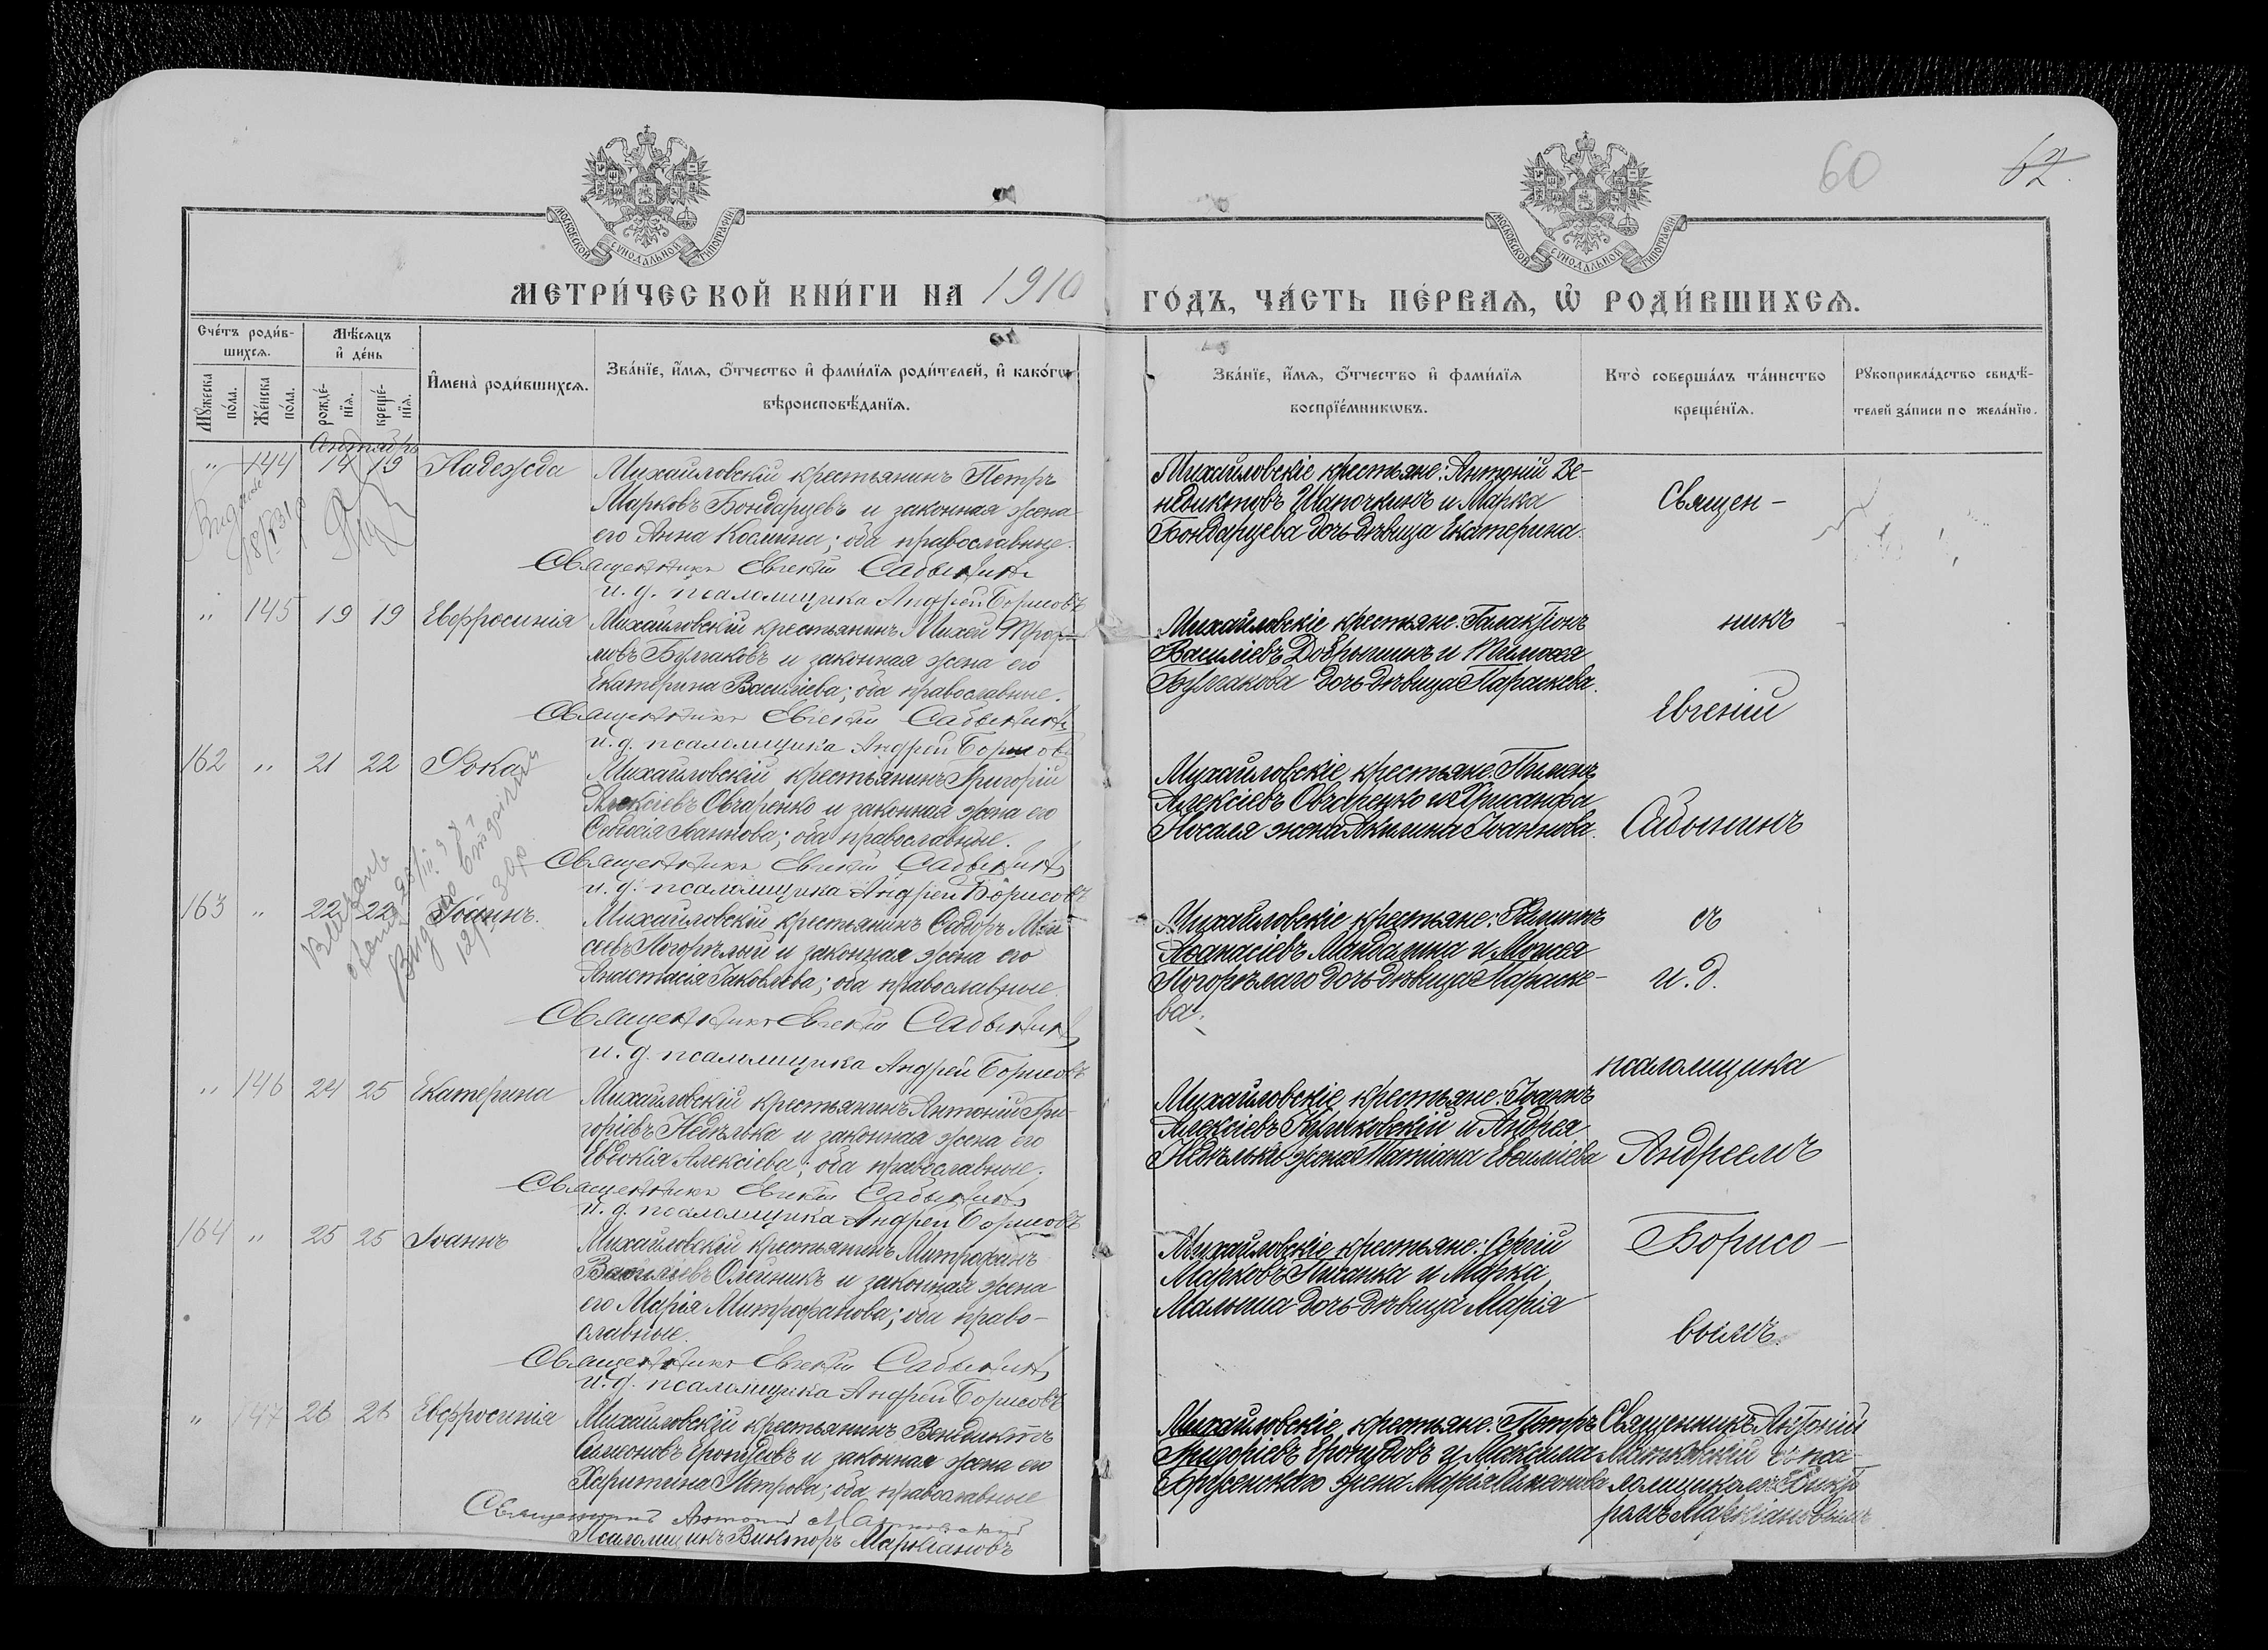 60
62.
МОСКОВСКОЙ СѴНОДАЛЬНОЙ ТИПОГРАФІИ
МОСКОВСКОЙ СѴНОДАЛЬНОЙ ТИПОГРАФІИ
МЕТРИ́ЧЕСКОЙ КНИ́ГИ НА 1910
ГО́ДЪ, ЧА́СТЬ ПЕ́РВАѦ, Ѡ҆ РОДИ́ВШИХСѦ.
Сче́тъ роди́в-
шихсѧ.
Мꙋ́жеска
по́ла.
Же́нска
по́ла.
Мѣ́сѧцъ
и҆ де́нь
рожде́-
нїѧ.
креще́-
нїѧ.
И҆мена̀ роди́вшихсѧ.
Зва́нїе, и҆́мѧ, ѻ҆́тчество и҆ фами́лїѧ роди́телей, и҆ како́гѡ
вѣроисповѣ́данїѧ.
Зва́нїе, и҆́мѧ, ѻ҆́тчество и҆ фами́лїѧ
воспрїе́мникѡвъ.
Кто̀ соверша́лъ та́инство
креще́нїѧ.
Рꙋкоприкла́дство свидѣ́-
телей за́писи по жела́нїю.
Сентябрь
" 144 14 19 Надежда
Михайловскій крестьянинъ Петръ
Марковъ Бондарцевъ и законная жена
его Анна Космина; оба православные.
Священникъ Евгеній Сабынинъ
и. д. псаломщика Андрей Борисовъ
Михайловскіе крестьяне: Антоній Ве-
недиктовъ Шапочкинъ и Марка
Бондарцева дочь девица Екатерина.
" 145 19 19 Евфросинія
Михайловскій крестьянинъ Михей Трофи-
мовъ Булгаковъ и законная жена его
Екатерина Василіева; оба православные.
Священникъ Евгеній Сабынинъ
и. д. псаломщика Андрей Борисовъ
Михайловскіе крестьяне: Галактіонъ
Василіевъ Добрынинъ и Тимоѳея
Булгакова дочь девица Параскева.
162 " 21 22 Фока
Михайловскій крестьянинъ Григорій
Алексіевъ Овчаренко и законная жена его
Ѳеодосія Іоаннова; оба православные.
Священникъ Евгеній Сабынинъ
и. д. псаломщика Андрей Борисовъ
Михайловскіе крестьяне: Пименъ
Алексіевъ Овчаренко и Хрисанфа
Носаля жена Акилина Іоаннова.
163 " 22 22 Іоаннъ.
Михайловскій крестьянинъ Сидоръ Мои-
сеевъ Погорѣлый и законная жена его
Анастасія Іаковлева; оба православные.
Священникъ Евгеній Сабынинъ
и. д. псаломщика Андрей Борисовъ
Михайловскіе крестьяне: Филиппъ
Аѳанасіевъ Мандалина и Моисея
Погорѣлаго дочь девица Параске-
ва.
" 146 24 25 Екатерина
Михайловскій крестьянинъ Антоній Гри-
горіевъ Недѣлька и законная жена его
Евдокія Алексіева; оба православные.
Священникъ Евгеній Сабынинъ
и. д. псаломщика Андрей Борисовъ
Михайловскіе крестьяне: Іоаннъ
Алексіевъ и Андрея
Недѣльки жена Татіана
164 " 25 25 Іоаннъ
Михайловскій крестьянинъ Митрофанъ
Васильевъ Олейникъ и законная жена
его Марія Митрофанова; оба право-
славные.
Священникъ Евгеній Сабынинъ
и. д. псаломщика Андрей Борисовъ
Михайловскіе крестьяне: Сергій
Марковъ Писанка и Марка
Малыша дочь девица Марія
" 147 26 26 Евфросинія
Михайловскій крестьянинъ Венедиктъ
Симеоновъ и законная жена его
Харитина Петрова; оба православные
Священникъ Антоній Матковскій
Псаломщикъ Викторъ Маркіановъ
Михайловскіе крестьяне: Петръ
Григоріевъ и Максима
жена Марія
Священ-
никъ
Евгеній
Сабынинъ
съ
и. д.
псаломщика
Андреемъ
Борисо-
вымъ.
Священникъ Антоній
Матковскій съ пса-
ломщикомъ Викто-
ромъ Маркіановымъ